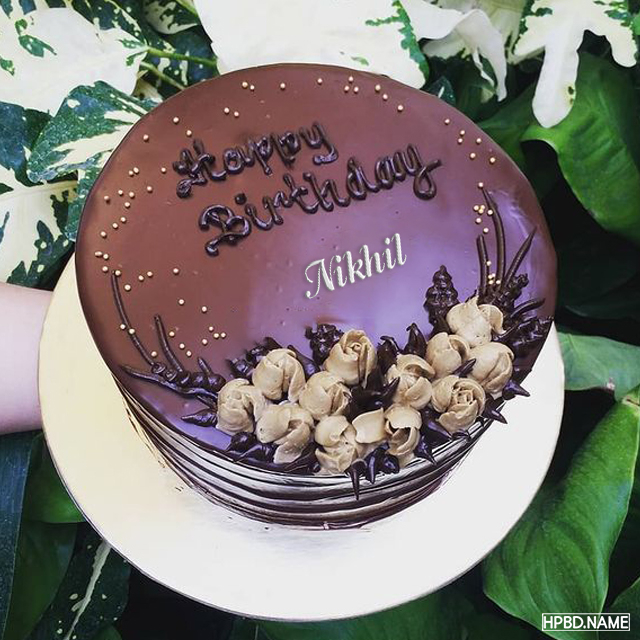 Happy
Birthday
Nikhil
HPBD.NAME